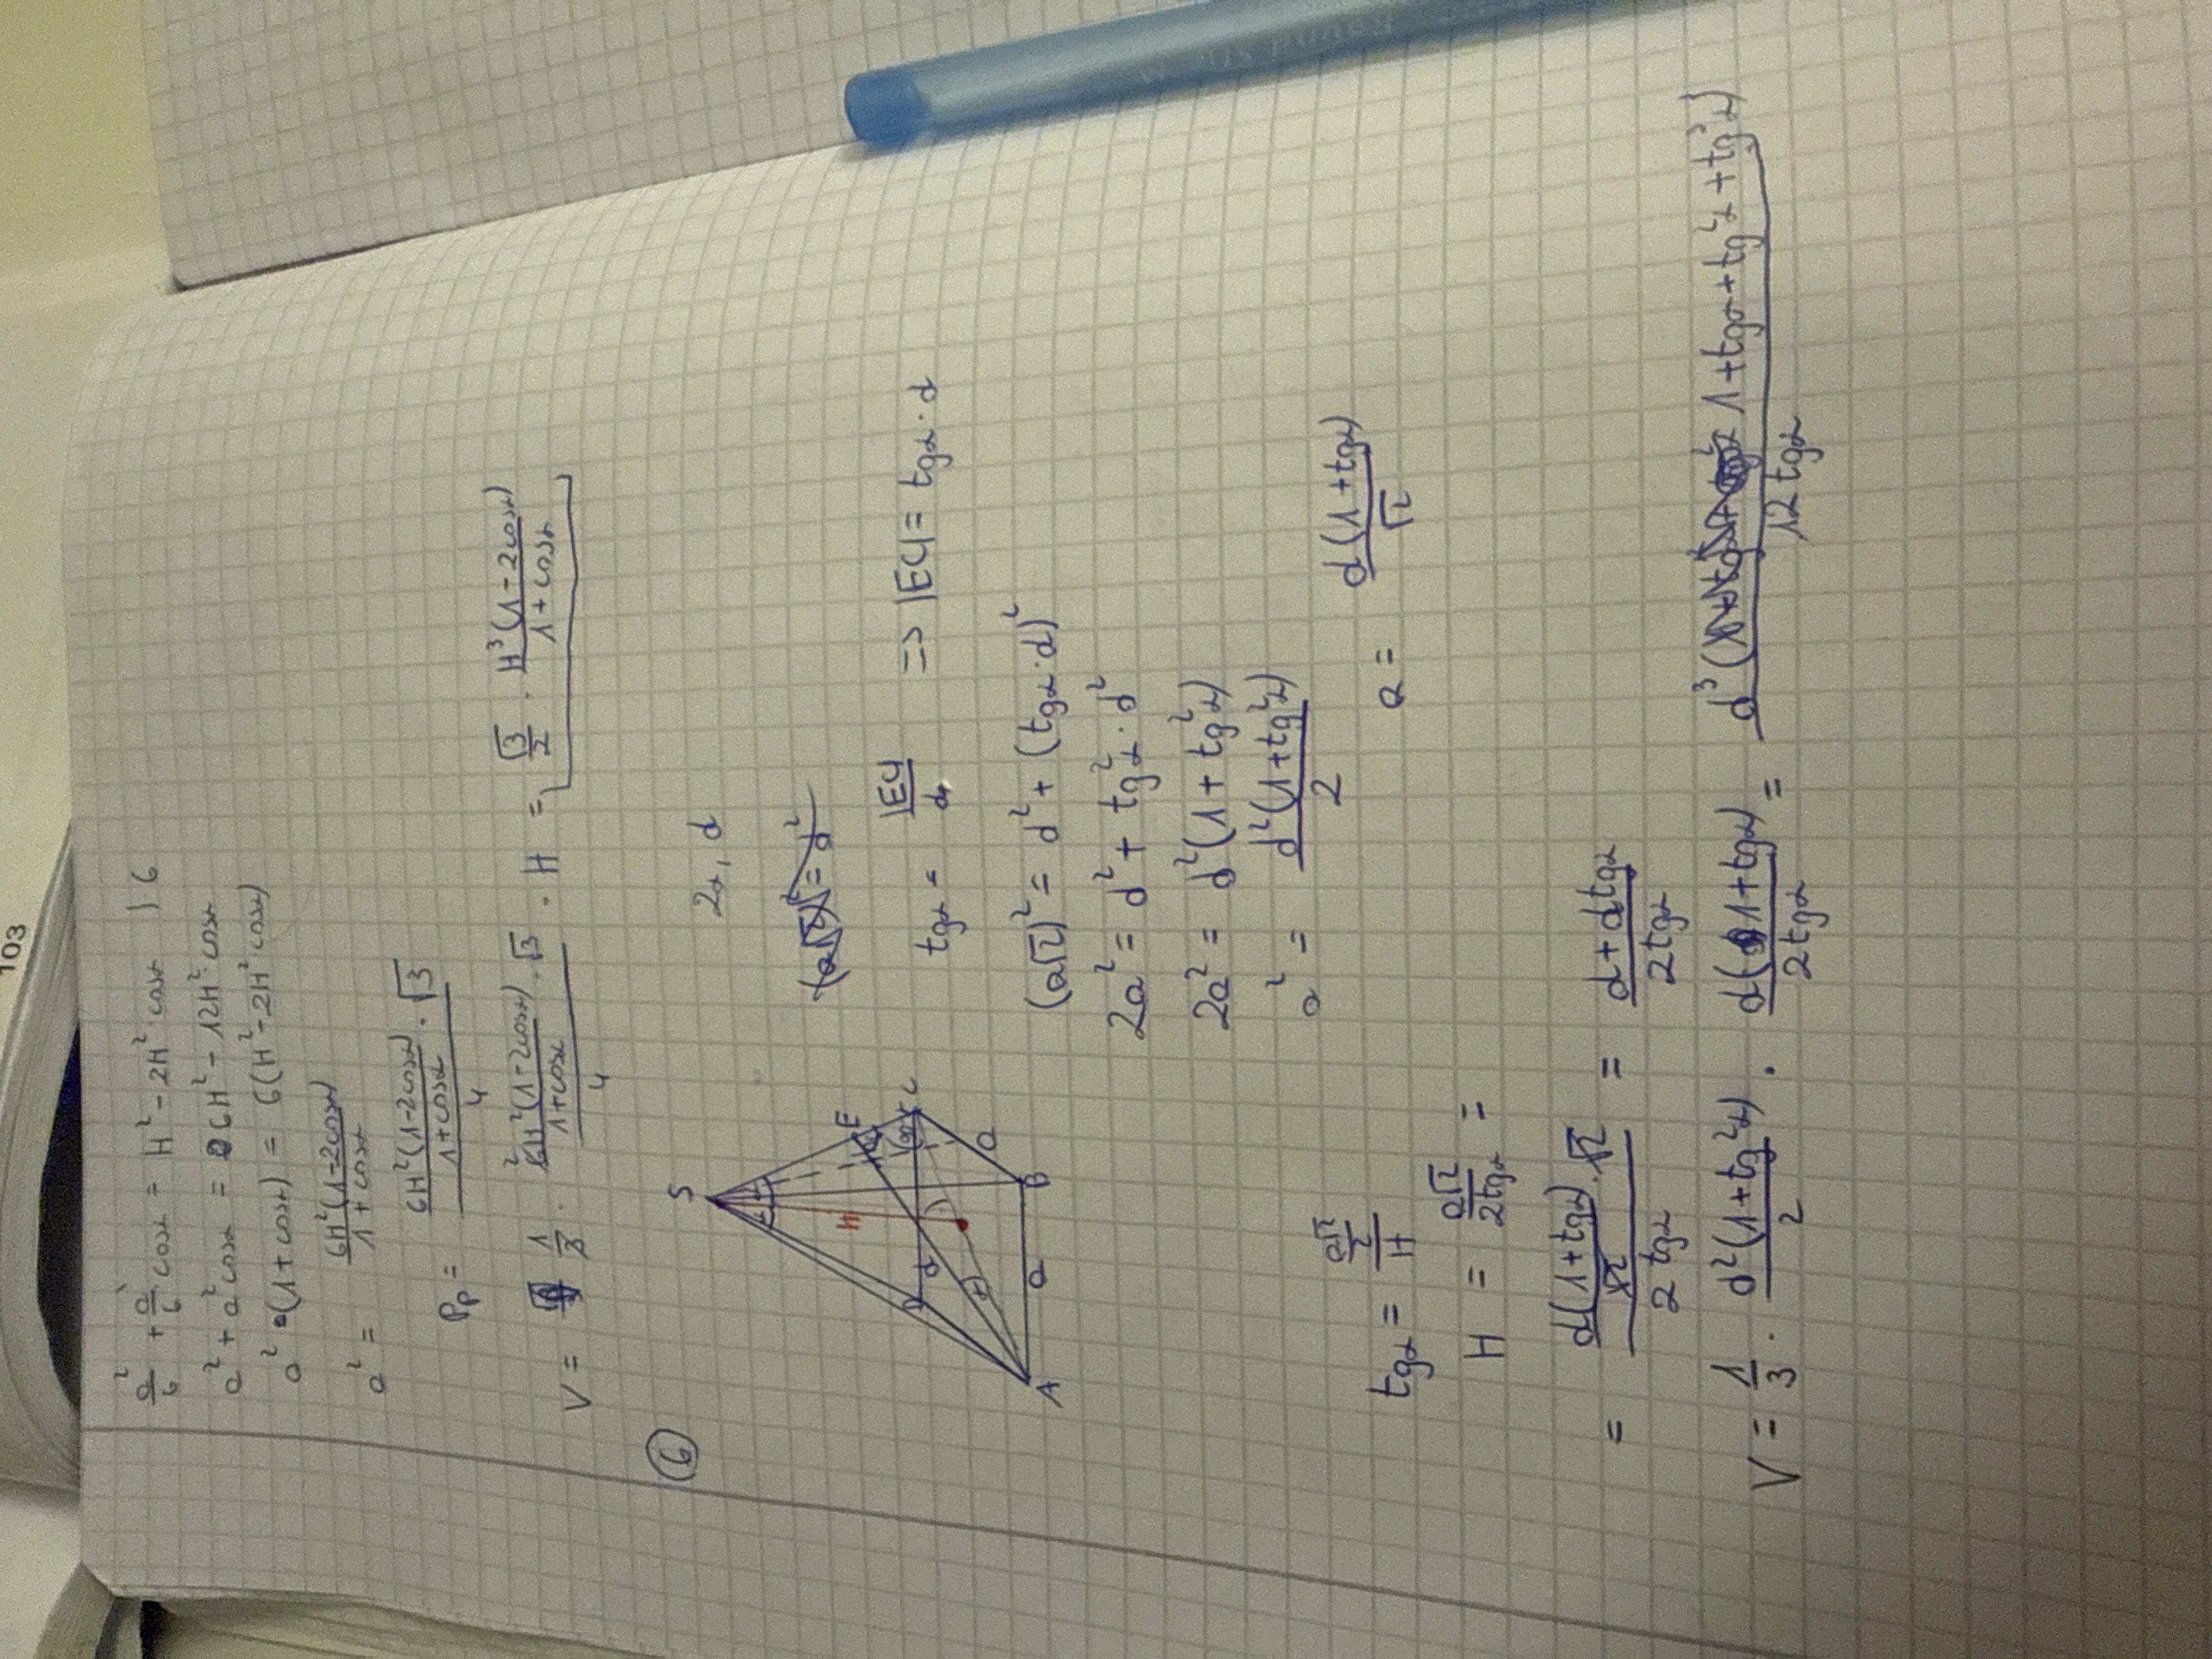 103
a²/6 + a²/6 cosα = H² - 2H² · cosα | 6
a² + a² cosα = 6H² - 12H² · cosα
a² (1 + cosα) = 6(H² - 2H² · cosα)
a² = 6H²(1-2cosα) / 1 + cosα
Pp = 6H²(1-2cosα)/1+cosα · √3 / 4
V = 1/3 · 6H²(1-2cosα)/1+cosα · √3 / 4 · H = √3/2 · H³(1-2cosα) / 1 + cosα
6
2α, d
S
H
E
C
D
d
a
A
a
B
tgα = |EC|/d => |EC| = tgα · d
(a√2)² = d² + (tgα · d)²
2a² = d² + tg²α · d²
2a² = d²(1 + tg²α)
a² = d²(1+tg²α) / 2
a = d(1+tgα) / √2
tgα = a√2/2 / H
H = a√2 / 2tgα =
= d(1+tgα)/√2 · √2 / 2 tgα = d + dtgα / 2tgα
V = 1/3 · d²(1+tg²α) / 2 · d(1+tgα) / 2tgα = d³(1+tgα+tg²α+tg³α) / 12 tgα